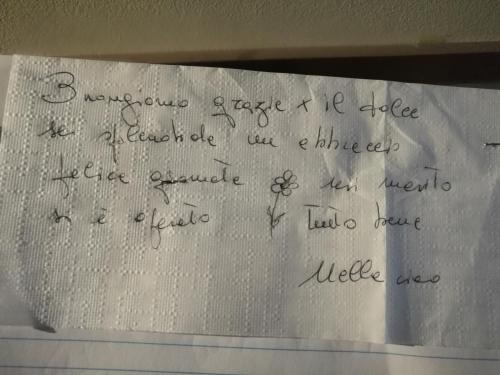 Buongiorno grazie x il dolce
sei splendida un abbraccio
felice marito
si è operato Tutto bene
Nella ciao